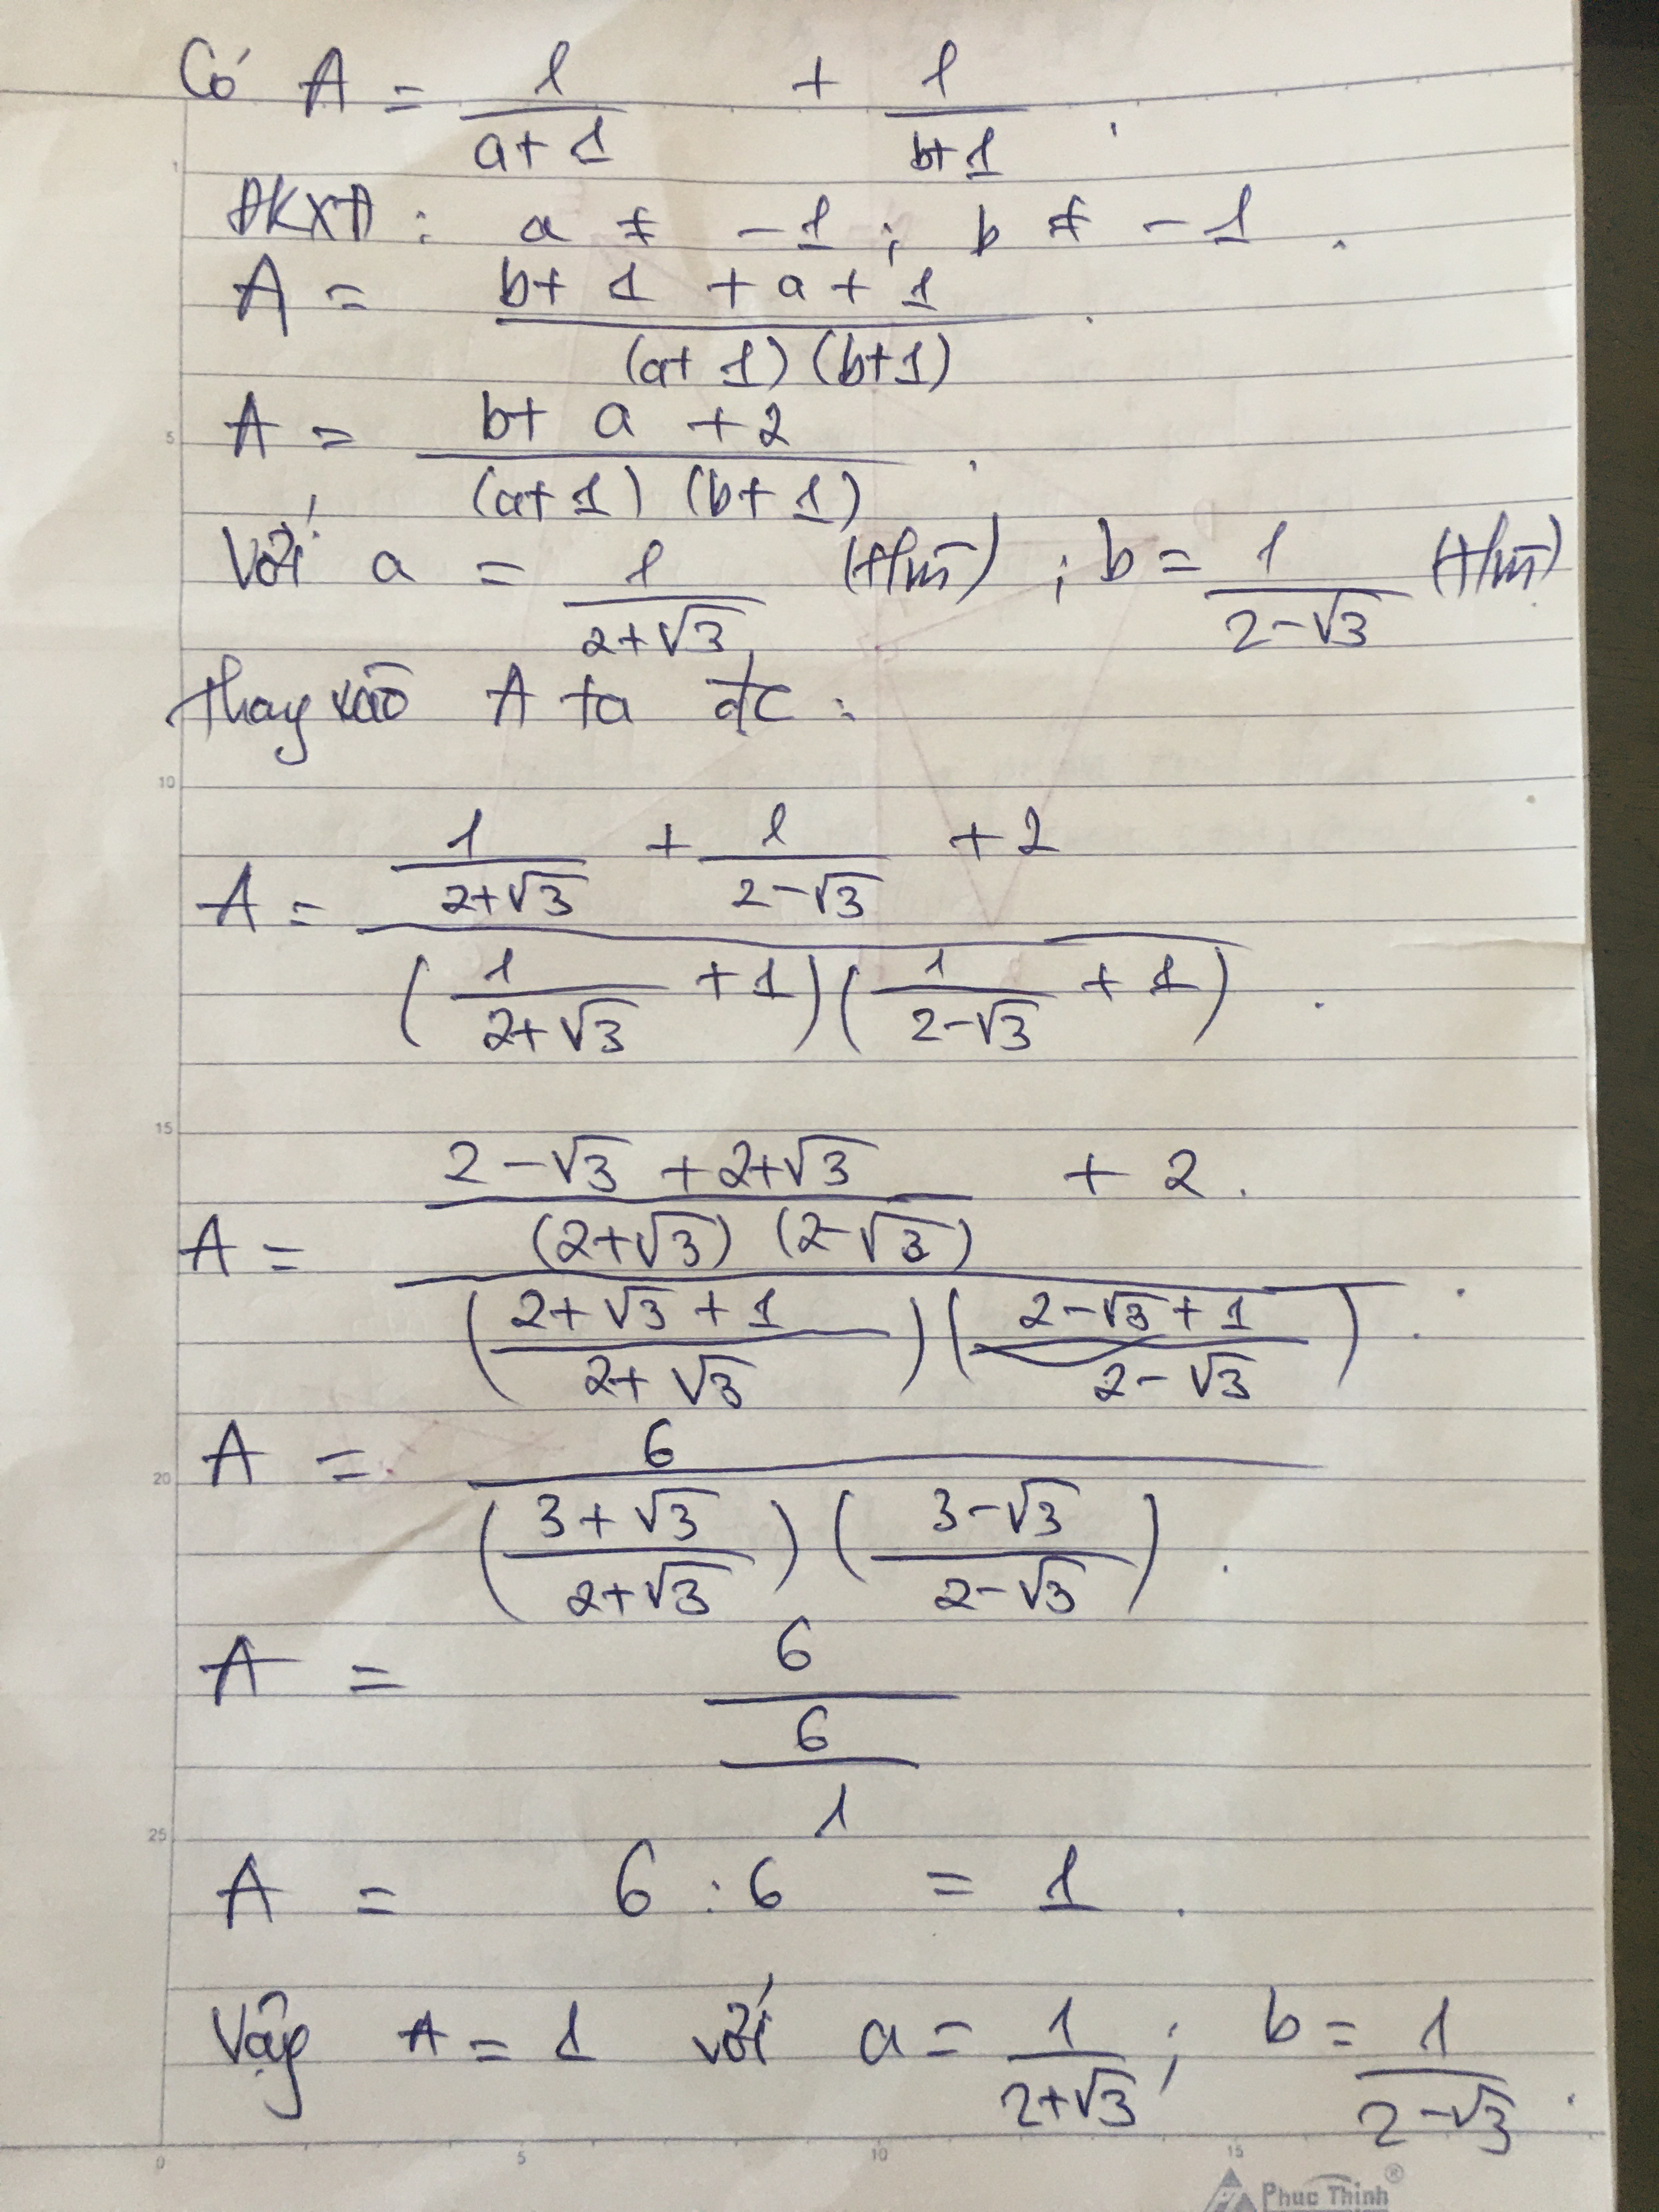 Có A = 1/(a+1) + 1/(b+1) .
ĐKXĐ : a ≠ -1 ; b ≠ -1 .
A = (b+1+a+1)/((a+1)(b+1)) .
A = (b+a+2)/((a+1)(b+1)) .
Với a = 1/(2+√3) (t/m) ; b = 1/(2-√3) (t/m)
thay vào A ta đc :
A = (1/(2+√3) + 1/(2-√3) + 2)/((1/(2+√3) + 1)(1/(2-√3) + 1)) .
A = ((2-√3+2+√3)/((2+√3)(2-√3)) + 2)/(((2+√3+1)/(2+√3))((2-√3+1)/(2-√3))) .
A = 6/(((3+√3)/(2+√3))((3-√3)/(2-√3))) .
A = 6/(6/1)
A = 6 : 6 = 1 .
Vậy A = 1 với a = 1/(2+√3) ; b = 1/(2-√3) .
1
5
10
15
20
25
0 5 10 15
Phuc Thinh®